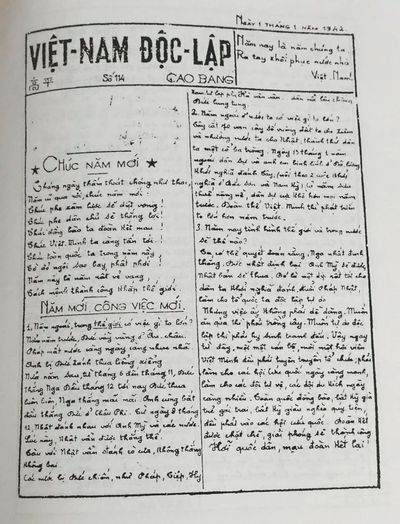 NGÀY 1 THÁNG 1 NĂM 1942.
VIỆT-NAM ĐỘC-LẬP
高平
SỐ 114
CAO BANG
Năm nay là năm chúng ta
Ra tay khôi phục nước nhà
Việt-Nam!
CHÚC NĂM MỚI
Tháng ngày thấm thoát chóng như thoi,
Năm cũ qua rồi, chúc năm mới
Chúc phe xâm lược sẽ diệt vong!
Chúc phe dân chủ sẽ thắng lợi!
Chúc đồng bào ta đoàn kết mau!
Chúc Việt-Minh ta càng tấn tới!
Chúc toàn quốc ta trong năm này
Cờ đỏ ngôi sao bay phất phới
Năm này là năm rất vẻ vang,
Cách mệnh thành công khắp thế giới.
NĂM MỚI CÔNG VIỆC MỚI
1. Năm ngoái, trong thế giới có việc gì to lớn?
Đầu năm trước, Đức vẫy vùng ở Âu-châu.
Pháp mất nước càng ngày càng nhục nhã.
Anh bị Đức đánh thua liểng xiểng
Nửa năm sau, từ tháng 6 đến tháng 11, Đức
thắng Nga. Đầu tháng 12 tới nay Đức thua
liên liên, Nga thắng mãi mãi. Anh cũng bắt
đầu thắng Đức ở châu Phi. Từ ngày 8 tháng
12, Nhật đánh nhau với Anh Mỹ và các nước.
Lúc này, Nhật vẫn được thắng thế.
Tàu với Nhật vẫn đánh co cưa, không thắng
không bại.
Các nước bị Đức chiếm, như Pháp, Tiệp, Hy
2. Năm ngoái ở nước ta có việc gì to lớn?
Tây cắt đất vạn cây số vuông đất ta cho Xiêm
và nhường nước ta cho Nhật, thành thử dân
ta một cổ ăn tròng. Ngày 13 tháng 1 năm
ngoái dân sự và anh em binh lính ở Đô-lương
khởi nghĩa đánh Tây, (nối theo 2 cuộc khởi
nghĩa ở Bắc Sơn và Nam Kỳ); cả năm sưu
thuế nặng nề, dân sự cực khổ hơn mọi năm
trước. Đoàn thể Việt-Minh thì phát triển
to lớn hơn năm trước.
3. Năm nay tình hình thế giới và trong nước
sẽ thế nào?
Ta có thể quyết đoán rằng, Nga nhất định
thắng, Đức nhất định bại. Anh Mỹ sẽ được,
Nhật Bản sẽ thua. Đó là một dịp rất tốt cho
dân ta khởi nghĩa đánh đuổi Pháp Nhật,
làm cho tổ quốc ta độc lập tự do
Nhưng việc ấy không phải dễ dàng. Muốn
ăn quả thì phải trồng cây. Muốn tự do độc
lập thì phải hy sinh tranh đấu. Vậy ngay
từ đây, mỗi một cán bộ, mỗi một hội viên
Việt Minh đều phải tuyên truyền tổ chức, phải
làm cho các hội cứu quốc ngày càng mạnh,
làm cho các đội tự vệ, các đội du kích ngày
càng nhiều. Toàn quốc đồng bào, bất kỳ già
trẻ gái trai, bất kỳ giàu nghèo quý tiện,
đều phải vào các hội cứu quốc. Đoàn kết
được chặt chẽ, giải phóng sẽ thành công
Hỡi quốc dân, mau đoàn kết lại!